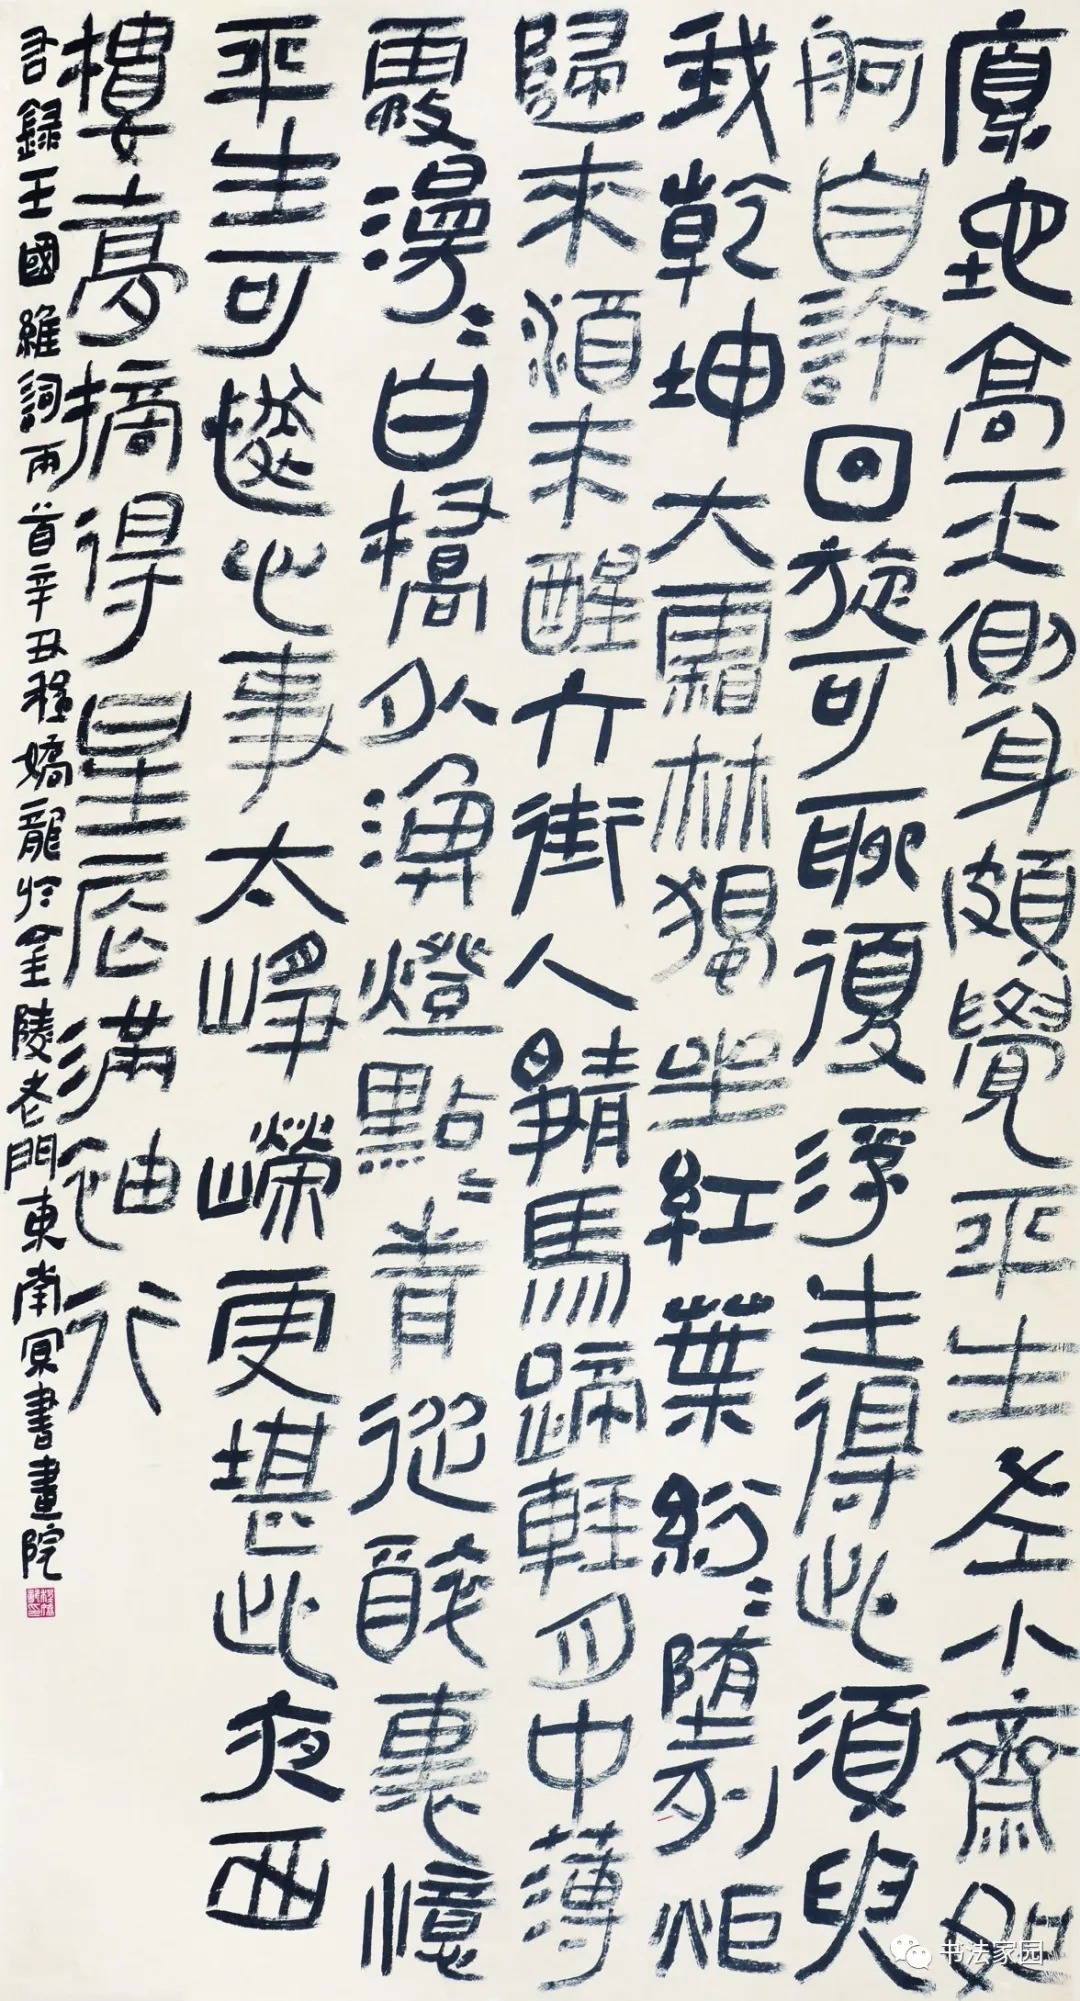 厚地高天側身頗覺平生左小齋如
舸自許回旋可聊復浮生得此須臾
我乾坤大霜林獨坐紅葉紛〻墮列炬
歸來酒未醒六街人靜馬蹄輕月中薄
霧漫〻白橋外漁燈點〻青從醉裏憶
平生可憐心事太崢嶸更堪此夜西
樓夢摘得星辰滿袖行
右錄王國維詞兩首辛丑嬌龍於金陵老門東南冥書畫院
书法家园